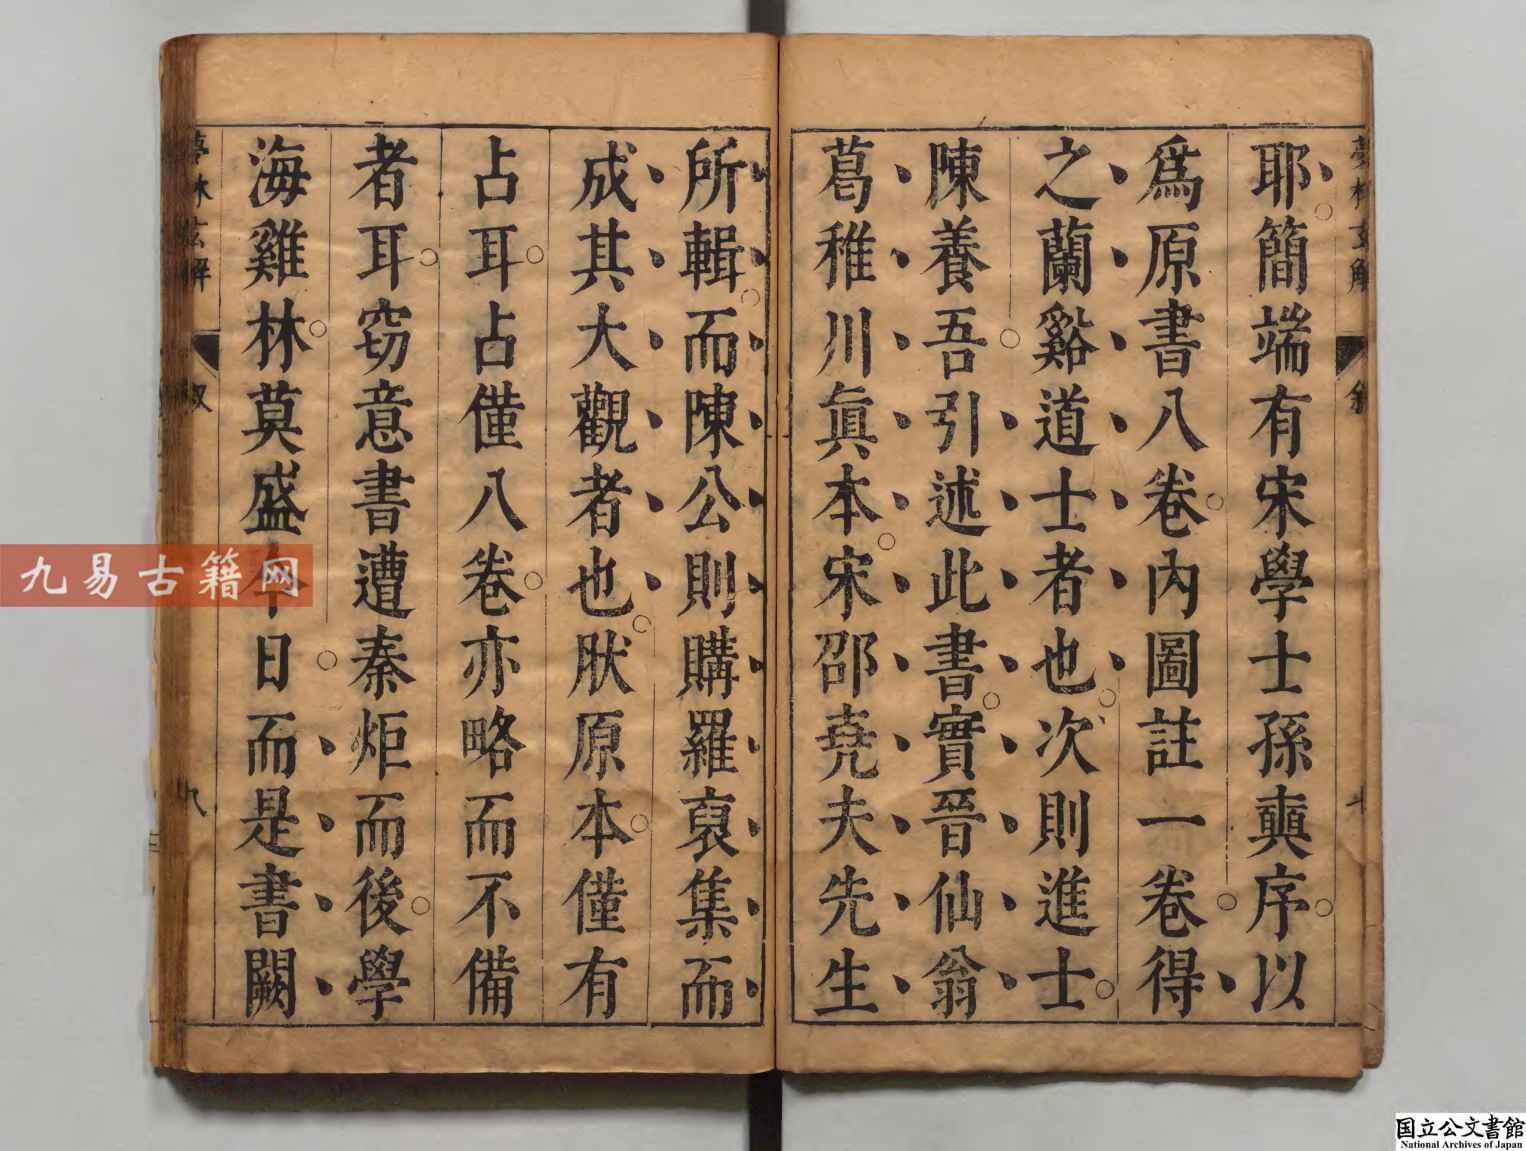 耶簡端有宋學士孫奭序以
爲原書八卷內圖註一卷得
之蘭谿道士者也次則進士
陳養吾引述此書實晉仙翁
葛稚川眞本宋邵堯夫先生
所輯而陳公則購羅裒集而
成其大觀者也肰原本僅有
占耳占僅八卷亦略而不備
者耳窃意書遭秦炬而後學
海雞林莫盛今日而是書闕
夢林玄解
敘
九
九易古籍网
国立公文書館
National Archives of Japan